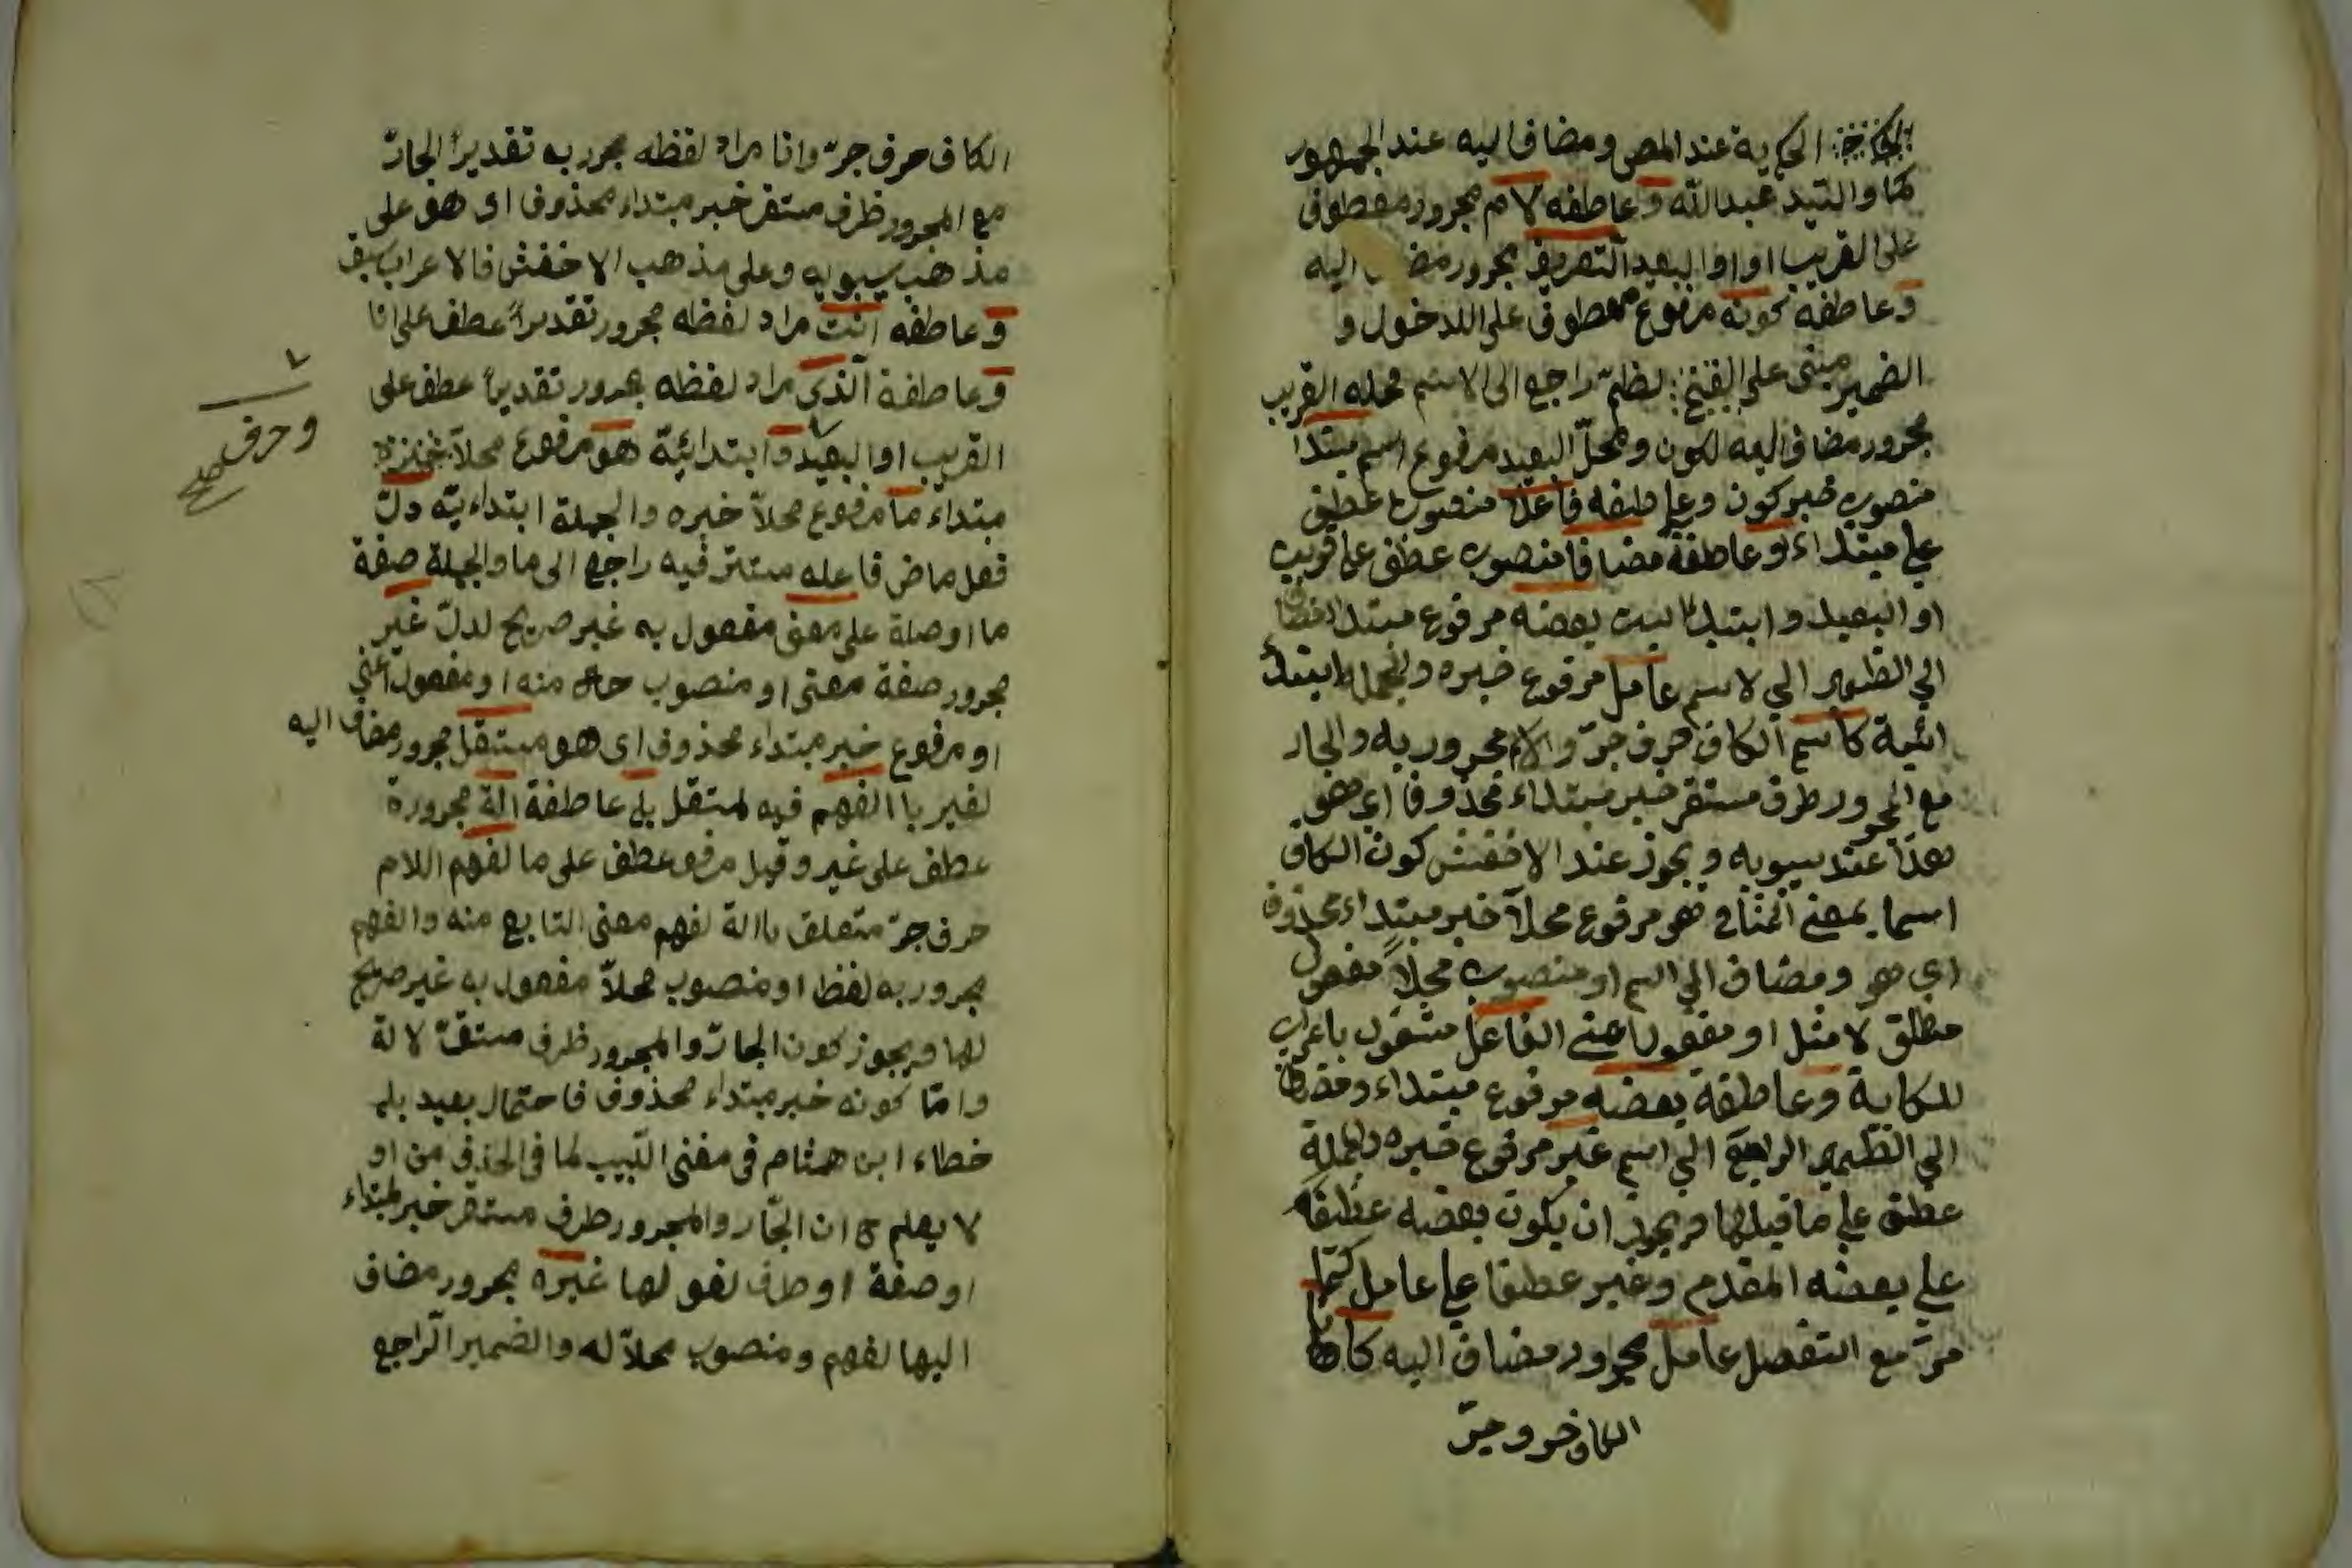 الحكاية عند المص ومضاف اليه عند الجمهور
كما والسيد عبدالله وعاطفه لام مجرور معطوف
على القريب او اوا البعيد التعريف مجرور اليه
وعاطفه كونه مرفوع معطوف على اللدخول و
الضمير مبنى على الفتح راجع الى الاسم محله القريب
مجرور مضاف اليه لكون ومحل البعيد مرفوع اسم مبتدا
منصوب خبر كون وعاطفه فاعلا منصوب عطف
على مبتداء وعاطفة مضافا منصوب عطف على قريب
او البعيد وابتد بعضه مرفوع مبتدا مضاف
الي الظمير الي لاسم عامل مرفوع خبره والجمله ابتدا
ائية كاسم الكاف حرف جرّ والام مجرور به والجار
مع المجرور طرف مستقر خبر مبتداء محذوفا اي هو
هذا عند سيبويه ويجوز عند الاخفش كون الكاف
اسما بمعنى المثل فهو مرفوع محلاً خبر مبتداء محذوف
اي هو ومضاف الي اسم او منصوب محلاً مفعول
مطلق لا مثل او مفعول اعني الفاعل مشغول باعراب
للحكاية وعاطفة بعضه مرفوع مبتداء ومضاف
الي الظمير الراجع الي اسم غير مرفوع خبره والجملة
عطف علي ما قبلها ويجوز ان يكون بعضه عطفا
علي بعضه المقدم وغير عطفا علي عامل كما
مرّ مع التفصل عامل مجرور مضاف اليه كانا
الكاف حرو جرّ
الكاف حرف جرّ وانا مراد لفظه مجرور به تقديراً الجارّ
مع المجرور ظرف مستقر خبر مبتداء محذوف اى هو على
مذهب سيبويه وعلى مذهب الاخفش فالاعراب سبق
وعاطفه انت مراد لفظه مجرور تقديراً عطف على انا
وعاطفة الّذى مراد لفظه مجرور تقديراً عطف على
القريب او البعيد وابتدائيّة هو مرفوع محلاً
مبتداء ما مرفوع محلاّ خبره والجملة ابتداءيّه دلّ
فعل ماض فاعله مستتر فيه راجع الى ما والجملة صفة
ما او صلة على معنى مفعول به غير صريح لدلّ غير
مجرور صفة معنى او منصوب حال منه او مفعول اعنى
او مرفوع خبر مبتداء محذوف اى هو مستقل مجرور مضاف اليه
لغير با الفهم فيه لمستقل بل عاطفة الة مجرورة
عطف على غير وقيل مرفوع عطف على ما لفهم اللام
حرف جرّ متعلق باالة لفهم معنى التابع منه والفهم
مجرور به لفظا ومنصوب محلاّ مفعول به غير صريح
لها ويجوز كون الجارّ والمجرور ظرف مستقرّ لالة
وامّا كونه خبر مبتداء محذوف فاحتمال بعيد بل
خطاء ابن همشام فى مغنى اللّبيب لما فى الحذف من او
لا يعلم ح ان الجّار والمجرور طرف مستقر خبر لمبتداء
او صفة او طرف لغو لها غيره مجرور مضاف
اليها لفهم ومنصوب محلاّ له والضمير الرّاجع
وحرف
صح